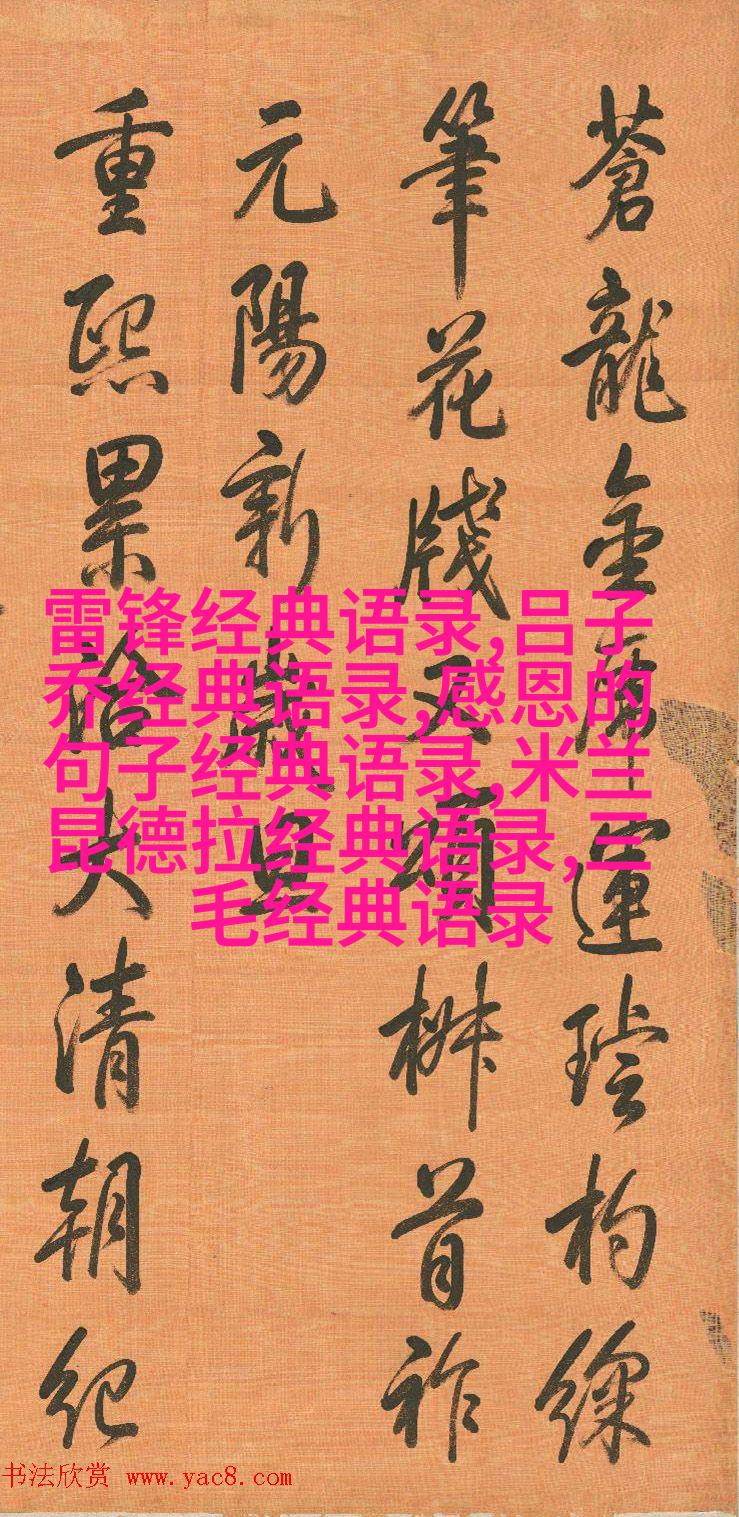 蒼龍金運杓綵
筆花牋又頌椒首祚
元陽新歲旦
重熙累洽大清朝紀
雷锋经典语录,吕子
乔经典语录,感恩的
句子经典语录,米兰
昆德拉经典语录,三
毛经典语录
书法欣赏 www.yac8.com